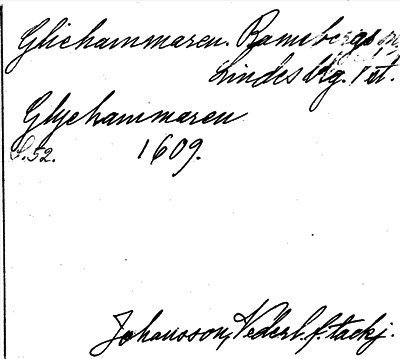 Gliehammaren. Ramsbergs sn
Lindes bg. 1 st.
Glyehammaren
S. 52. 1609.
Johansson, Vederl. f. tackj.